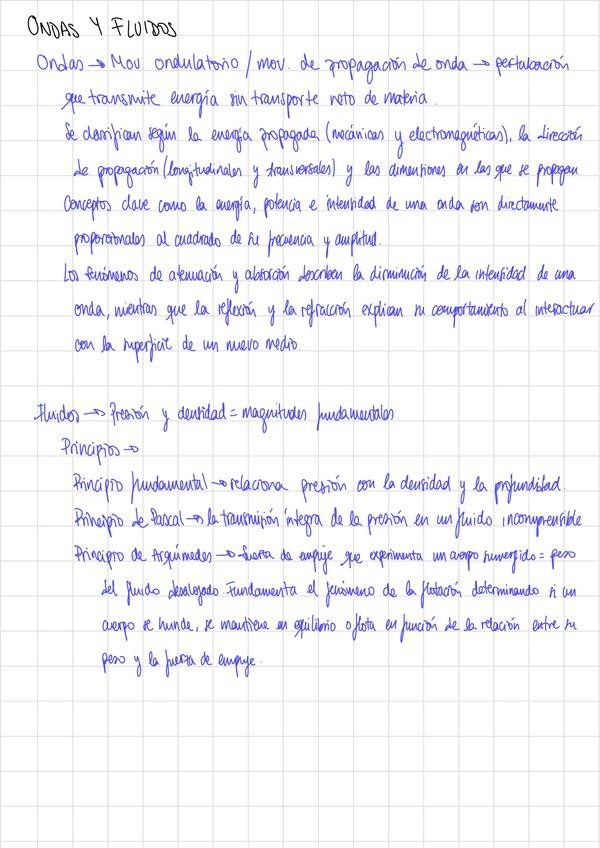 ONDAS Y FLUIDOS
Ondas → Mov. ondulatorio / mov. de propagación de onda → pertubación
que transmite energía sin transporte neto de materia.
Se clasifican según la energía propagada (mecánicas y electromagnéticas), la dirección
de propagación (longitudinales y transversales) y las dimensiones en las que se propagan
Conceptos clave como la energía, potencia e intensidad de una onda son directamente
proporcionales al cuadrado de su frecuencia y amplitud.
Los fenómenos de atenuación y absorción describen la disminución de la intensidad de una
onda, mientras que la reflexión y la refracción explican su comportamiento al interactuar
con la superficie de un nuevo medio.
Fluidos → Presión y densidad = magnitudes fundamentales
Principios →
Principio fundamental → relaciona presión con la densidad y la profundidad.
Principio de Pascal → la transmisión íntegra de la presión en un fluido incompresible
Principio de Arquímedes → fuerza de empuje que experimenta un cuerpo sumergido = peso
del fluido desalojado. Fundamenta el fenómeno de la flotación determinando si un
cuerpo se hunde, se mantiene en equilibrio o flota en función de la relación entre su
peso y la fuerza de empuje.